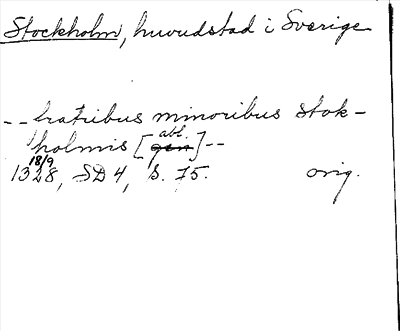 Stockholm, huvudstad i Sverige
-- fratribus minoribus stok-
holmis [gen abl.] --
1328 18/9, SD 4, s. 75. orig.